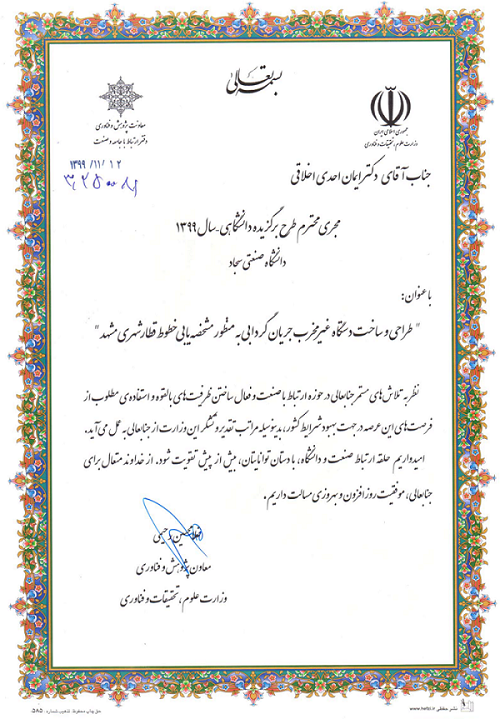 بسمه تعالی
جمهوری اسلامی ایران
وزارت علوم، تحقیقات و فناوری
معاونت پژوهش و فناوری
دفتر ارتباط با جامعه و صنعت
۱۳۹۹/۱۱/۱۲
جناب آقای دکتر ایمان احدی اخلاقی
مجری محترم طرح برگزیده دانشگاهی-سال ۱۳۹۹
دانشگاه صنعتی سجاد
با عنوان:
"طراحی و ساخت دستگاه غیرمخرب جریان گردابی به منظور مشخصه‌یابی خطوط قطار شهری مشهد"
نظر به تلاش‌های مستمر جنابعالی در حوزه ارتباط با صنعت و فعال ساختن ظرفیت‌های بالقوه و استفاده‌ی مطلوب از
فرصت‌های این عرصه در جهت بهبود شرایط کشور، بدینوسیله مراتب تقدیر و تشکر این وزارت از جنابعالی به عمل می‌آید.
امیدواریم حلقه ارتباط صنعت و دانشگاه، با دستان توانایتان، بیش از پیش تقویت شود. از خداوند متعال برای
جنابعالی، موفقیت روزافزون و بهروزی مسالت داریم.
غلامحسین رحیمی
معاون پژوهش و فناوری
وزارت علوم، تحقیقات و فناوری
نشر حفظی www.hefzi.ir
حق چاپ محفوظ